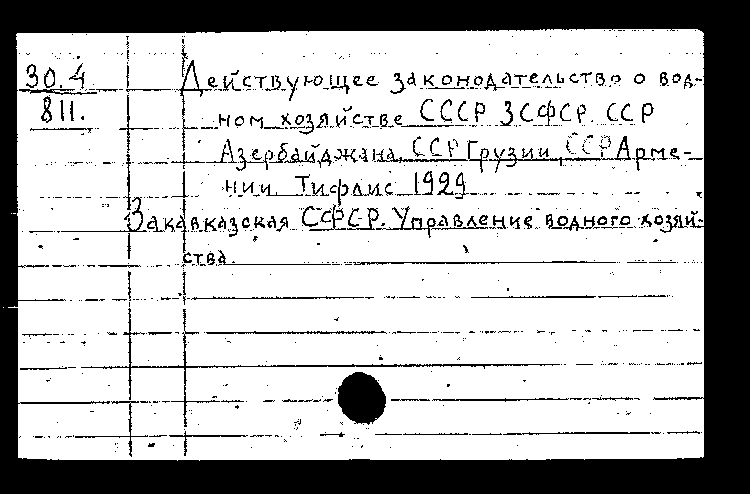 30.4 Действующее законодательство о вод-
811. ном хозяйстве СССР ЗСФСР. ССР
Азербайджана, ССР Грузии, ССР Арме-
нии. Тифлис 1929
Закавказская СФСР. Управление водного хозяй-
ства.